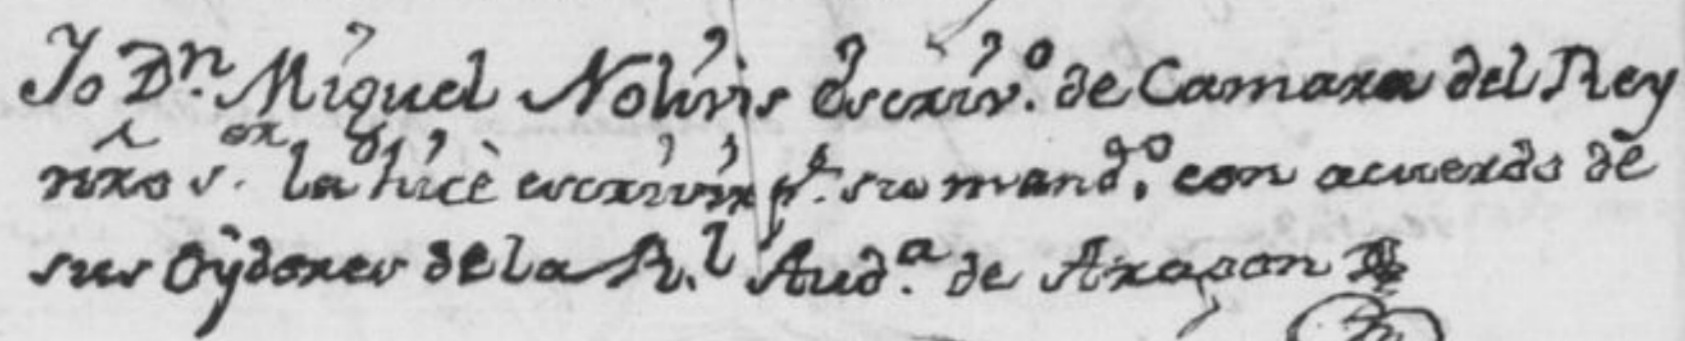 Yo Dn. Miguel Noliviís Escriv.º de Camara del Rey
nrõ s.or la hicè escrivir p.r su mand.do con acuerdo de
sus Oydores de la R.l Aud.a de Aragon